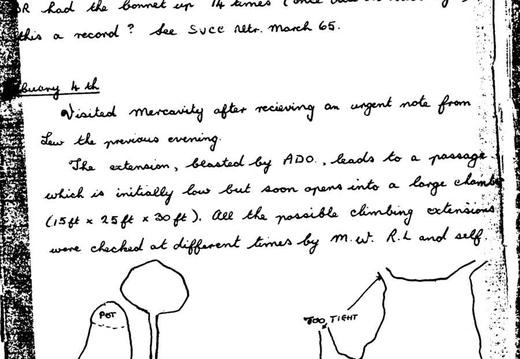 had the bonnet up 14 times (once
this a record? See SVCC Nltr. March 65.
February 4th
Visited Mercavity after recieving an urgent note from
Lew the previous evening.
The extension, blasted by ADO., leads to a passage
which is initially low but soon opens into a large chamber
(15ft x 25ft x 30ft). All the possible climbing extensions
were checked at different times by M.W. R.L and self.
POT
TOO TIGHT